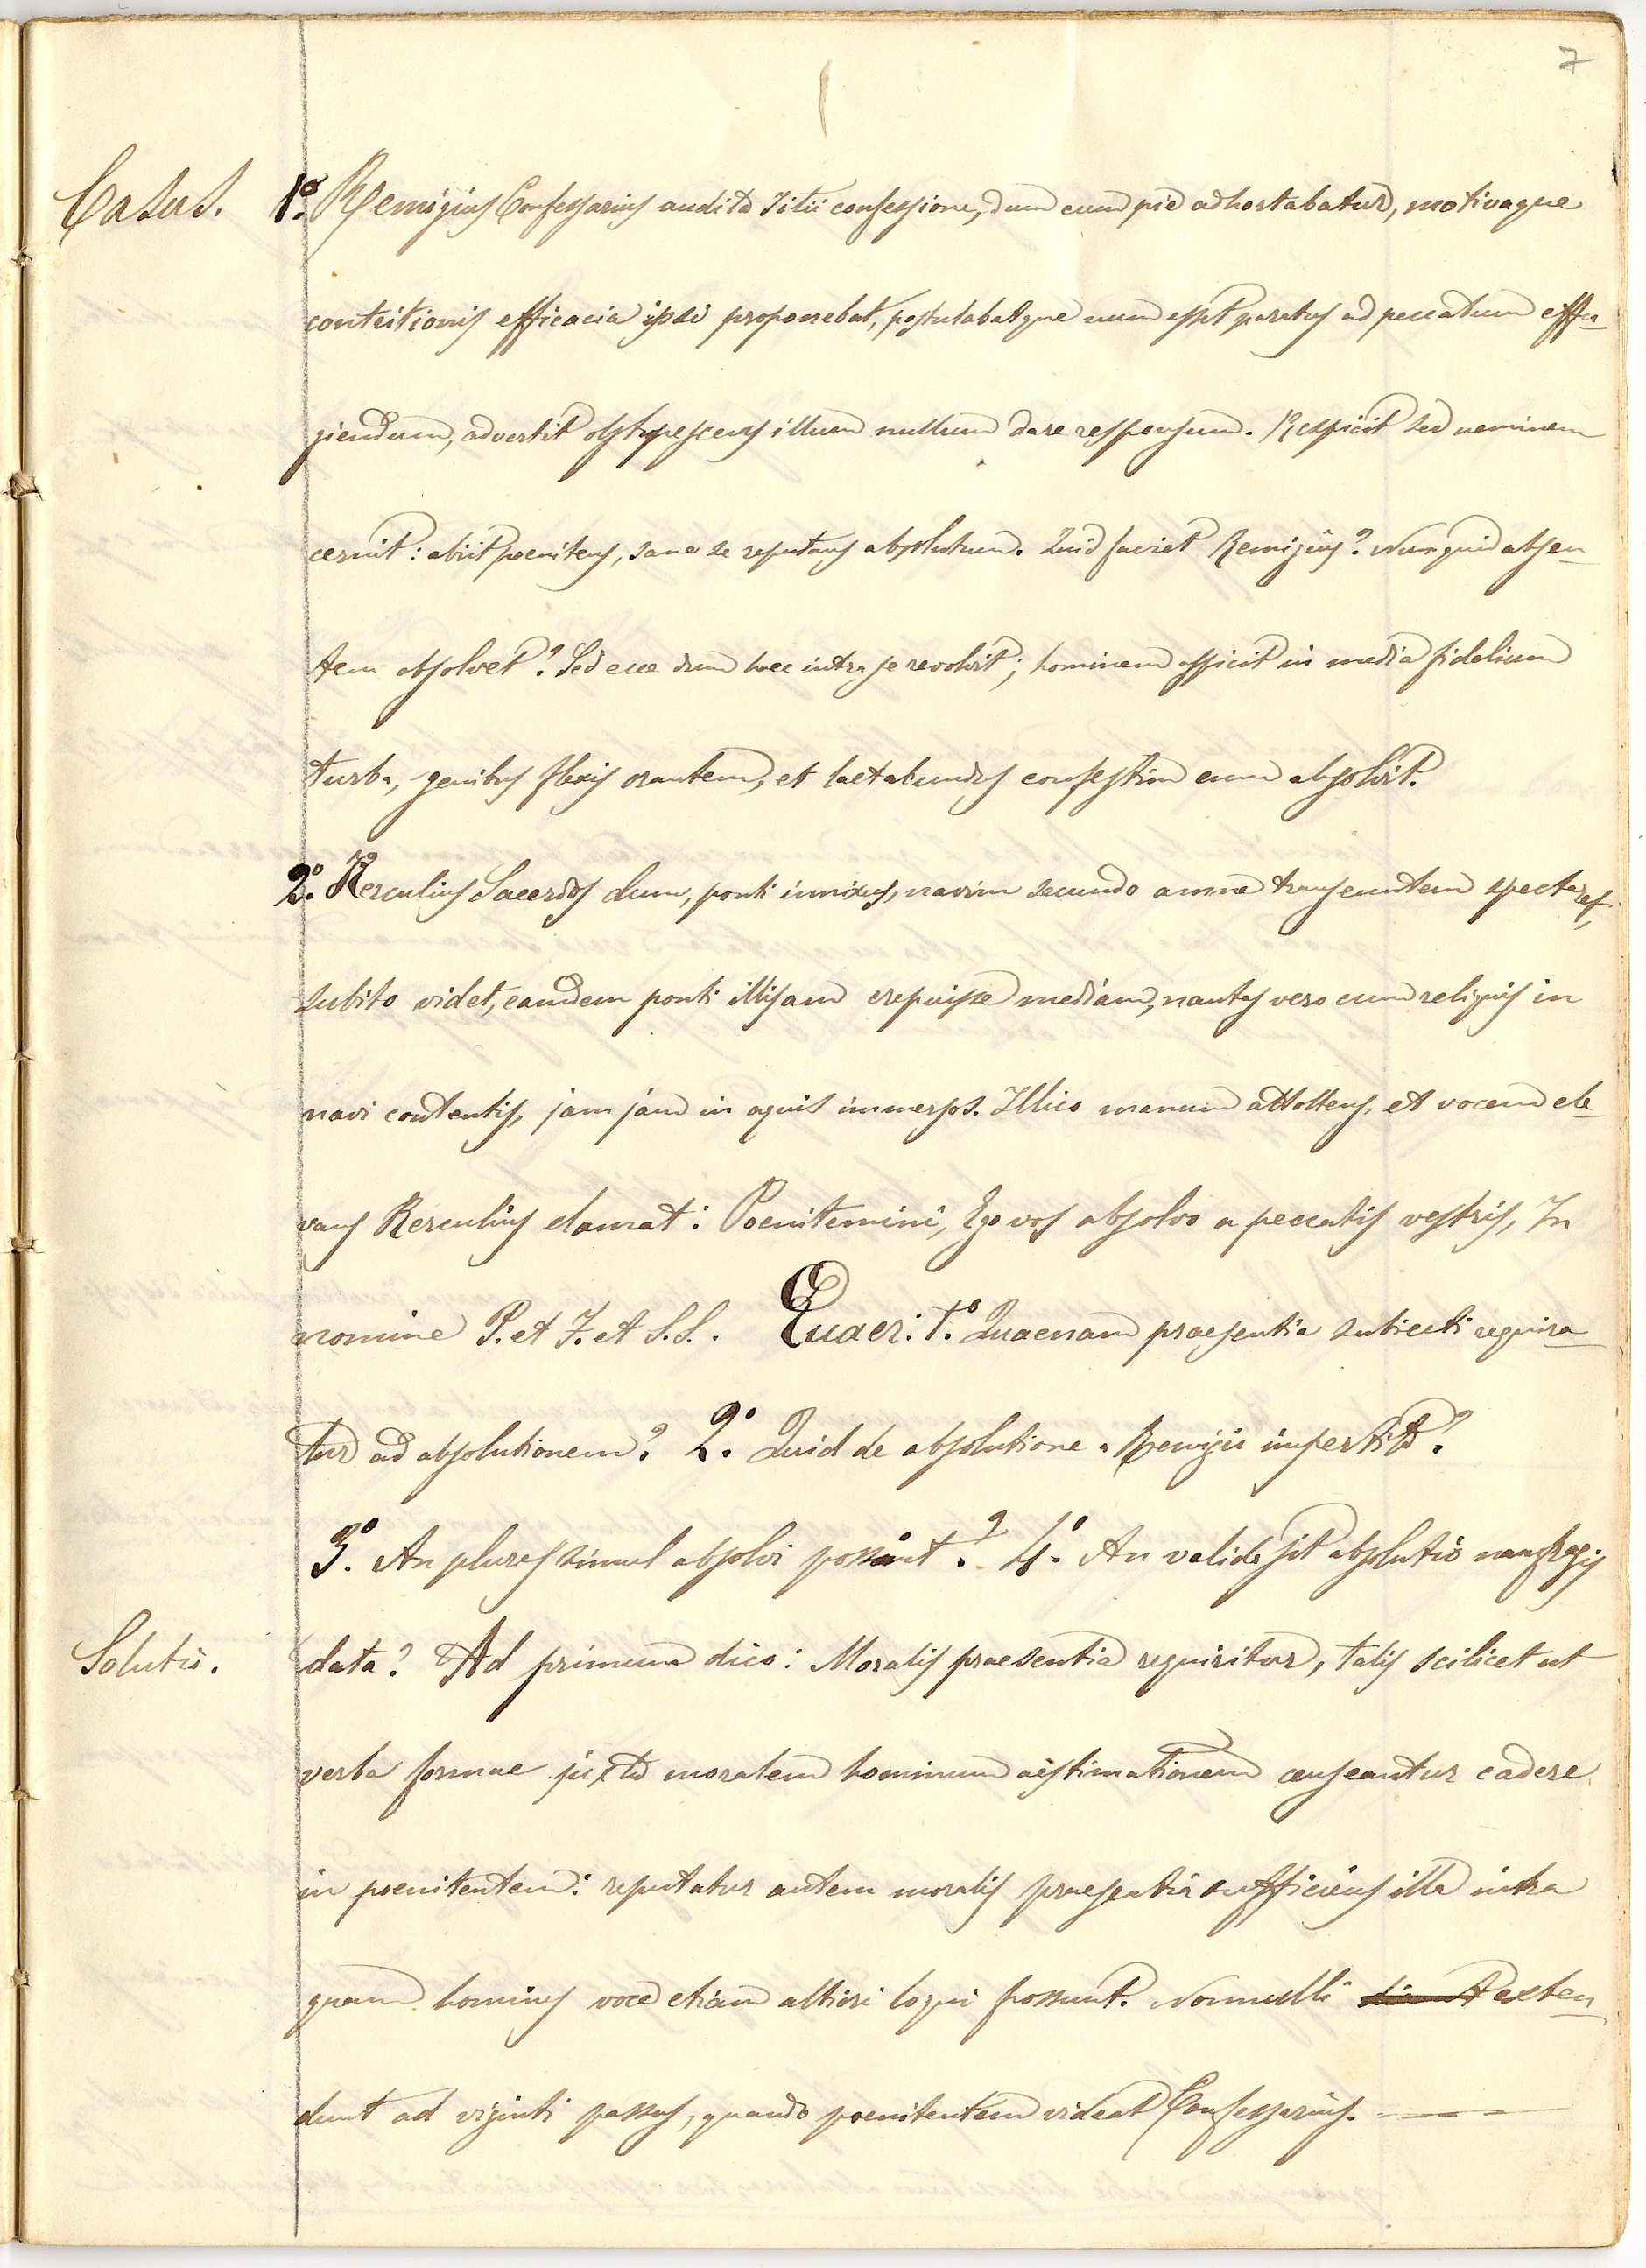 7
Casus. 1.º Remigius Confessarius audita Titii confessione, dum eum pie adhortabatur, motivaque
contritionis efficacia ipsi proponebat, postulabatque num esset paratus ad peccatum effu-
giendum, advertit obstupescens illum nullum dare responsum. Respicit sed neminem
cernit: abiit poenitens, sane se reputans absolutum. Quid faciet Remigius? Numquid absen-
tem absolvet? Sed ecce dum haec intra se revolvit; hominem aspicit in media fidelium
turba, genibus flexis orantem, et laetabundus confestim eum absolvit.
2.º Herculius Sacerdos dum, ponti innixus, navim secundo amne transeuntem spectaret,
subito videt, eamdem ponti illisam crepuisse mediam, nautas vero cum reliquis in
navi contentis, jam jam in aquis immersos. Illico manum attollens, et vocem ele-
vans Herculius clamat: Poenitemini, Ego vos absolvo a peccatis vestris, In
nomine P. et F. et S. S. Quaer: 1.º Quaenam praesentia subiecti requira-
tur ad absolutionem? 2.º Quid de absolutione a Remigio impertita?
3.º An plures simul absolvi possint? 4.º An valida sit absolutio naufragis
Solutio. data? Ad primum dico: Moralis praesentia requiritur, talis scilicet ut
verba formae juxta moralem hominum aestimationem censeantur cadere
in poenitentem: reputatur autem moralis praesentia sufficiens illa intra
quam homines voce etiam altiori loqui possunt. Nonnulli exten-
dunt ad viginti passus, quando poenitentem videat Confessarius.